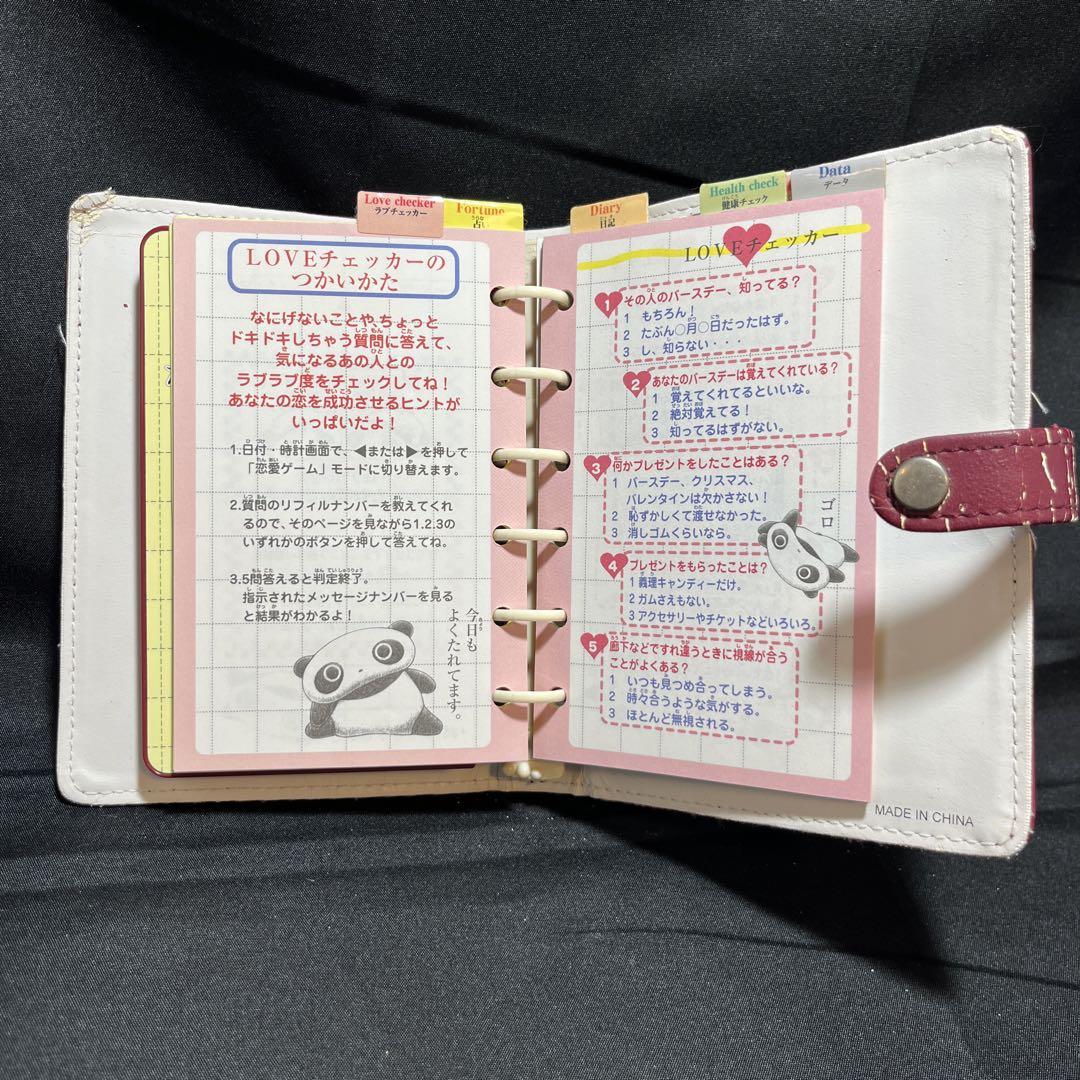 Love checker
ラブチェッカー
Fortune
占い
Diary
日記
Health check
健康チェック
Data
データ
LOVEチェッカーの
つかいかた
なにげないことや、ちょっと
ドキドキしちゃう質問に答えて、
気になるあの人との
ラブラブ度をチェックしてね!
あなたの恋を成功させるヒントが
いっぱいだよ!
1.日付・時計画面で、◀または▶を押して
「恋愛ゲーム」モードに切り替えます。
2.質問のリフィルナンバーを教えてくれ
るので、そのページを見ながら1.2.3の
いずれかのボタンを押して答えてね。
3.5問答えると判定終了。
指示されたメッセージナンバーを見る
と結果がわかるよ!
今日も
よくたれてます。
LOVEチェッカー
1 その人のバースデー、知ってる?
1 もちろん!
2 たぶん○月○日だったはず。
3 し、知らない・・・
2 あなたのバースデーは覚えてくれている?
1 覚えてくれてるといいな。
2 絶対覚えてる!
3 知ってるはずがない。
3 何かプレゼントをしたことはある?
1 バースデー、クリスマス、
バレンタインは欠かさない!
2 恥ずかしくて渡せなかった。
3 消しゴムくらいなら。
ゴロ
4 プレゼントをもらったことは?
1 義理キャンディーだけ。
2 ガムさえもない。
3 アクセサリーやチケットなどいろいろ。
5 廊下などですれ違うときに視線が合う
ことがよくある?
1 いつも見つめ合ってしまう。
2 時々合うような気がする。
3 ほとんど無視される。
MADE IN CHINA